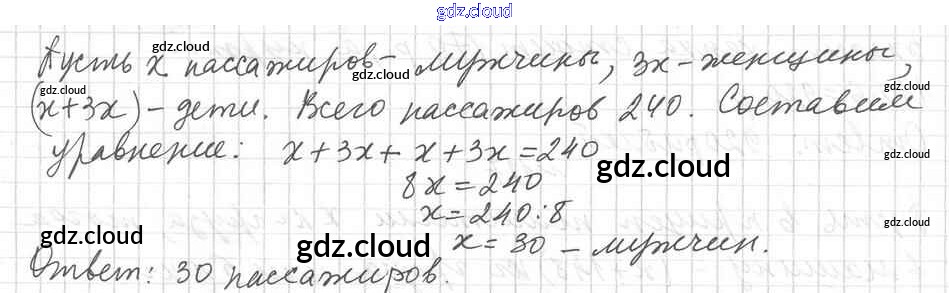 gdz.cloud
Пусть x пассажиров - мужчины, 3x - женщины,
(x+3x) - дети. Всего пассажиров 240. Составим
уравнение: x+3x+x+3x=240
8x=240
x=240:8
x=30 - мужчин.
Ответ: 30 пассажиров.
gdz.cloud
gdz.cloud
gdz.cloud
gdz.cloud
gdz.cloud
gdz.cloud
gdz.cloud
gdz.cloud
gdz.cloud
gdz.cloud